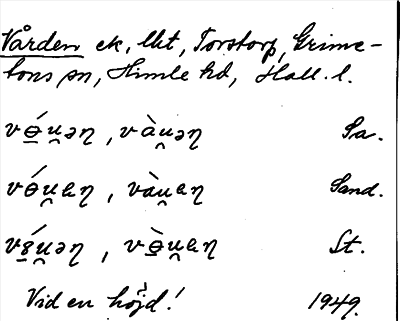 Vården ek, lht, Torstorp, Grime-
tons sn, Himle hd, Hall. l.
vɵ́u̯əꞃ, vàu̯əꞃ Sa.
vɵ́u̯aꞃ, vàu̯aꞃ Sand.
v8́u̯əꞃ, vɵ̀u̯aꞃ St.
Vid en höjd! 1949.